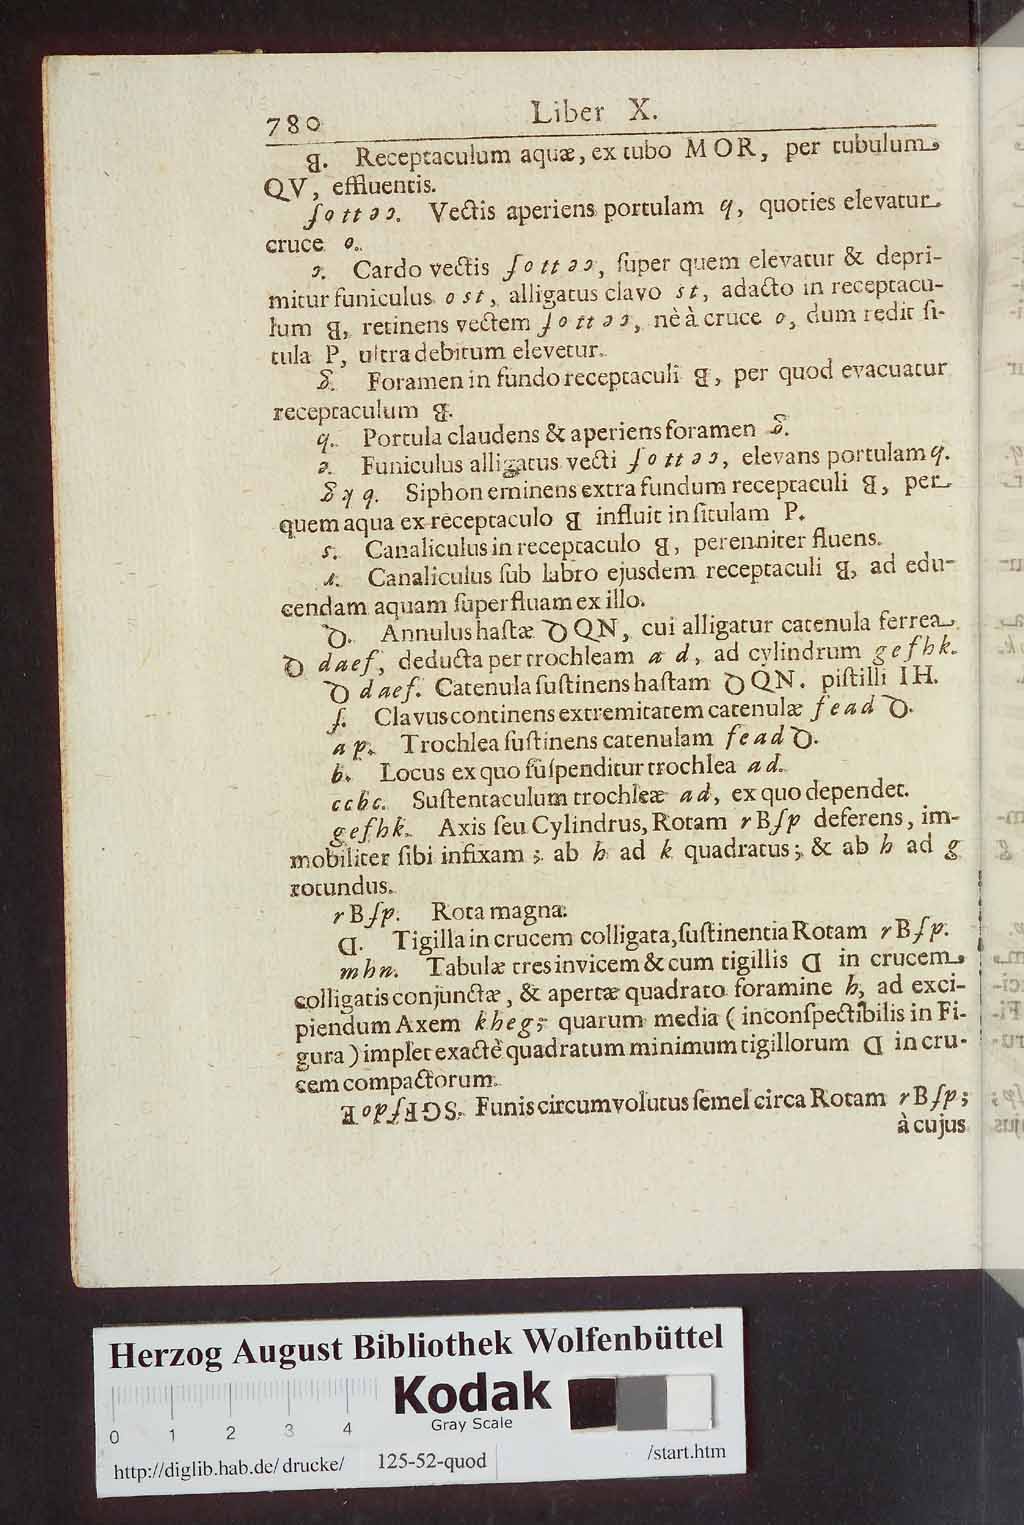 780 Liber X.
g. Receptaculum aquæ, ex tubo MOR, per tubulum
QV, effluentis.
ſottɔɔ. Vectis aperiens portulam q, quoties elevatur
cruce o.
ɔ. Cardo vectis ſottɔɔ, ſuper quem elevatur & depri-
mitur funiculus ost, alligatus clavo st, adacto in receptacu-
lum g, retinens vectem ſottɔɔ, nè à cruce o, dum redit ſi-
tula P, ultra debitum elevetur.
Foramen in fundo receptaculi g, per quod evacuatur
receptaculum g.
q. Portula claudens & aperiens foramen
Funiculus alligatus vecti ſottɔɔ, elevans portulam q.
Siphon eminens extra fundum receptaculi g, per
quem aqua ex receptaculo g influit in ſitulam P.
s. Canaliculus in receptaculo g, perenniter fluens.
Canaliculus ſub labro ejusdem receptaculi g, ad edu-
cendam aquam ſuperfluam ex illo.
Annulus haſtæ QN, cui alligatur catenula ferrea
daef, deducta per trochleam a d, ad cylindrum gefhk.
daef. Catenula ſuſtinens haſtam QN. piſtilli IH.
ſ. Clavus continens extremitatem catenulæ fead
ap. Trochlea ſuſtinens catenulam fead
b. Locus ex quo ſuſpenditur trochlea ad.
ccbc. Suſtentaculum trochleæ ad, ex quo dependet.
gefhk. Axis ſeu Cylindrus, Rotam rBſp deferens, im-
mobiliter ſibi infixam; ab h ad k quadratus; & ab h ad g
rotundus.
rBſp. Rota magna.
Tigilla in crucem colligata, ſuſtinentia Rotam rBſp.
mhn. Tabulæ tres invicem & cum tigillis in crucem
colligatis conjunctæ, & apertæ quadrato foramine h, ad exci-
piendum Axem kheg; quarum media (inconſpectibilis in Fi-
gura) implet exactè quadratum minimum tigillorum in cru-
cem compactorum.
Funis circumvolutus ſemel circa Rotam rBſp;
à cujus
Herzog August Bibliothek Wolfenbüttel
Kodak
Gray Scale
0 1 2 3 4
http://diglib.hab.de/drucke/ 125-52-quod /start.htm